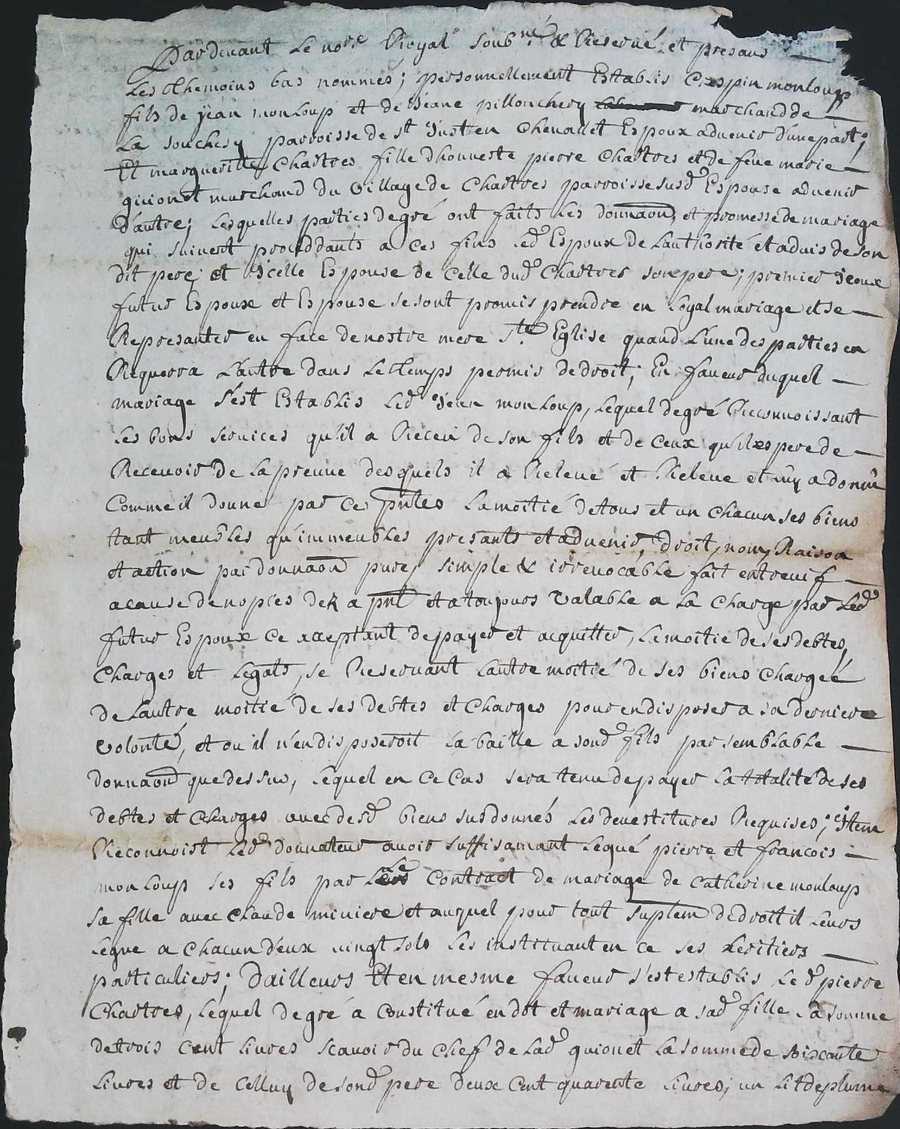 Pardevant Le no.re Royal soub.né & Reservé, et presans
Les thémoins bas nommés; personnellement Establis Crespin monloup
fils de jean monloup et de Jeane pillonchery marchand de
La souchery parroisse de st Just en Chevallet Espoux advenir d'une part;
Et margueritte Chastres fille d'honneste pierre Chastres et de feüe marie
guionet marchand du village de Chastres parroisse susd. Espouse advenir
d'autre; Lesquelles parties de gré ont faits Les donnaõn, et promesse de mariage
qui suivent proceddants a ces fins Led. Espoux de L'authorité et advis de son
dit pere; et Icelle Espouse de Celle dud. Chastres son pere; premier Iceux
futur Espoux et Espouse se sont promis prendre en Loyal mariage et se
Representer en face de nostre mere S.te Eglise quand L'une des parties en
Requerra L'autre dans Le temps permis de droit; En faveur duquel
mariage s'est Establis Led. Jean monloup, Lequel de gré Reconnoissant
Les bons services qu'il a Receu de son fils et de Ceux qu'il espere de
Recevoir de La preuve desquels il a Relevé et Releve et luy a donné
Comme il donne par ce pntes La moitié de tous et un Chacun ses biens
tant meubles qu'immeubles presants et advenir, droit, nom, Raison
et action par donnaõn pure, simple & irrevocable fait entre vif
a cause de nopces dez a pnt et a toujours valable a La Charge par Led.
futur Espoux ce acceptant de payer et acquitter, La moitié de ses debtes,
Charges et Legats, se Reservant L'autre moitié de ses biens Chargée
de L'autre moitié de ses debtes et Charges pour en disposer a sa derniere
volonté, et ou il n'en disposeroit La baille a sond. fils par semblable
donnaõn que dessus, Lequel en ce Cas sera tenu de payer La totalité de ses
debtes et Charges avec desd. biens susdonnés Les devestitures Requises; Item
Reconnoist Led. donnateur avoir suffisamant Legué pierre et françois
monloup ses fils par Le Contract de mariage de Catherine monloup
sa fille avec Claude miniere et auquel pour tout suplem. de droit il Leurs
Legue a Chacun d'eux vingt sols Les instituant en ce ses heritiers
particuliers; D'ailleurs Et en mesme faveur s'est establis Le d. pierre
Chastres, Lequel de gré a Constitué en dot et mariage a sad. fille La somme
de trois cent Livres scavoir du Chef de Lad. guionet La somme de soixante
Livres et de Celluy de sond. pere deux Cent quarente Livres; un Lit de plume